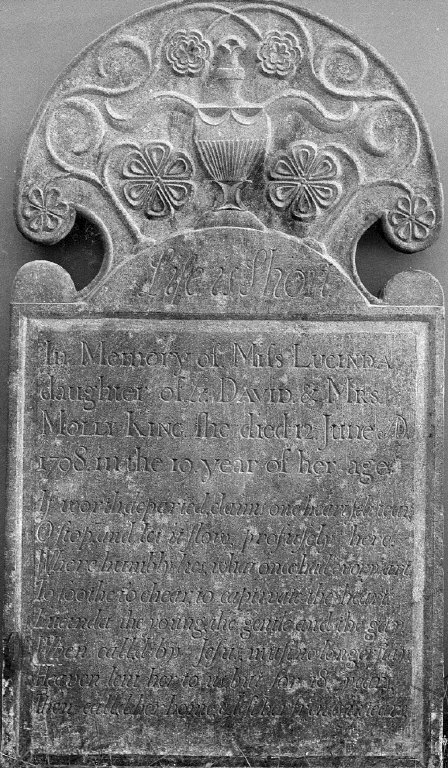 Life is Short
In Memory of Miſs LUCINDA
daughter of DAVID & MRS
MOLLY KING ſhe died 12 June A.D.
1798. in the 19 year of her age.
If worth departed claims one
O ſtop, and let it flow, profuſely here
Where humbly lies what once had
To ſoothe to chear, to captivate the heart
Lucinda the young the gentle and the gay
When called by Jeſus muſt no longer
Heaven lent her to us but for
then called her home